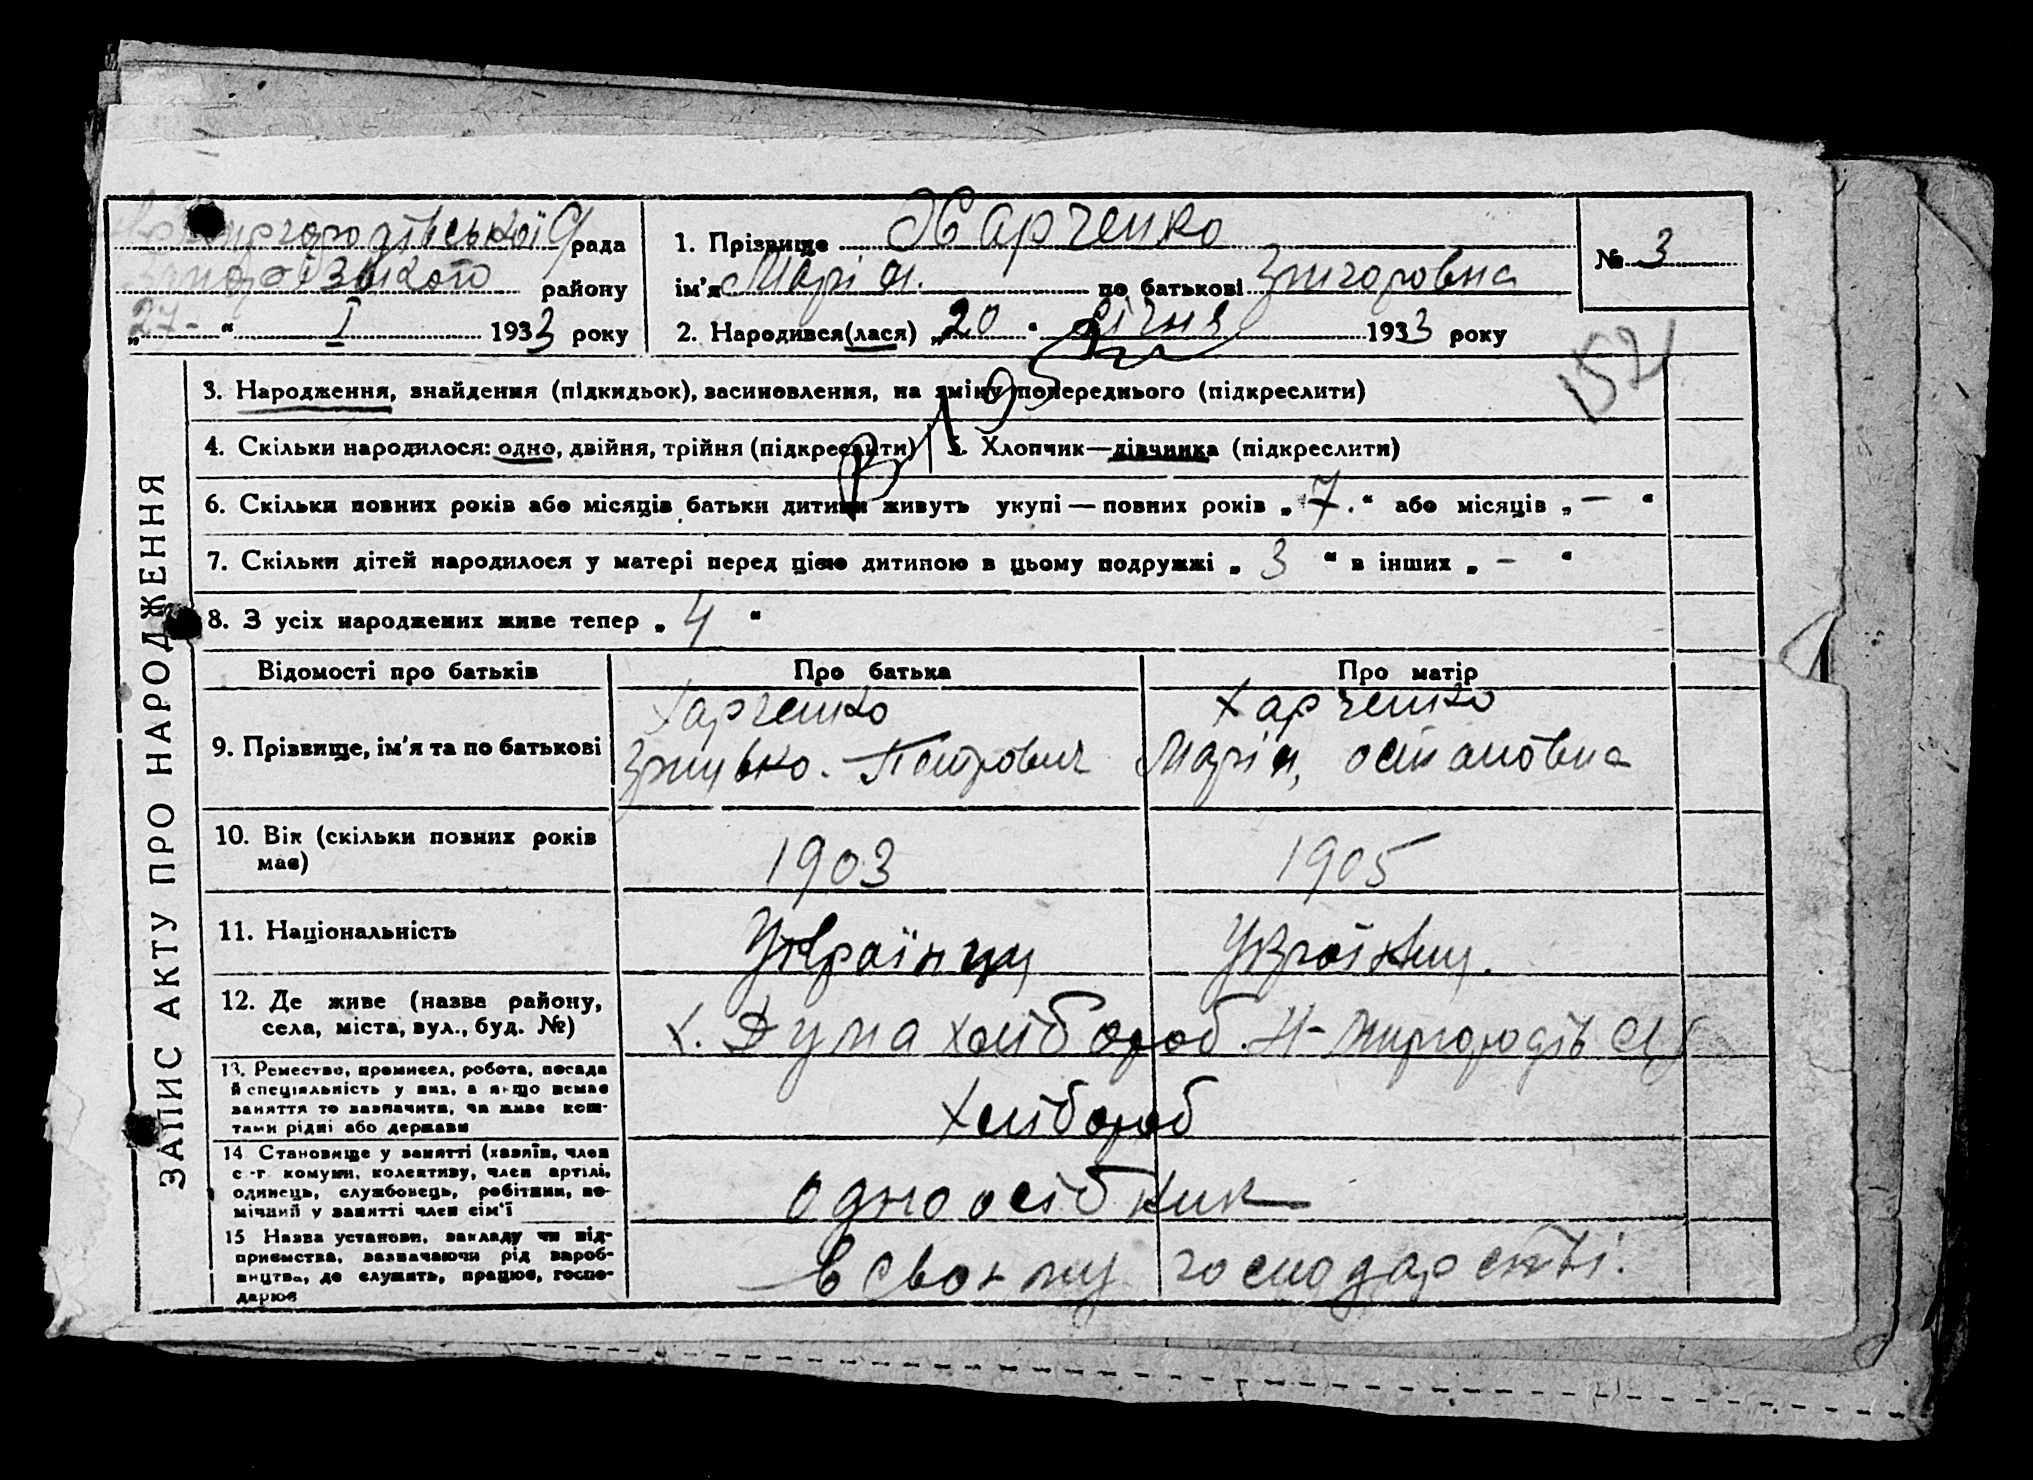 Миргородівської С/рада
Запорізького району
„27-“ I 1933 року
1. Прізвище Харченко
ім'я Марія. по батькові Григоровна
№ 3
2. Народився(лася) „20“ січня 1933 року
152
3. Народження, знайдення (підкидьок), засиновлення, на зміну попереднього (підкреслити)
4. Скільки народилося: одно, двійня, трійня (підкреслити) 5. Хлопчик—дівчинка (підкреслити)
6. Скільки повних років або місяців батьки дитини живуть укупі — повних років „7.“ або місяців „—“
7. Скільки дітей народилося у матері перед цією дитиною в цьому подружжі „3“ в інших „-“
8. З усіх народжених живе тепер „4“
ЗАПИС АКТУ ПРО НАРОДЖЕННЯ
Відомості про батьків Про батька Про матір
9. Прізвище, ім'я та по батькові
Харченко
Грицько. Петрович
Харченко
Марія, остаповна
10. Вік (скільки повних років має) 1903 1905
11. Національність Українци Україниц.
12. Де живе (назва району,
села, міста, вул., буд. №)
х. Дума хлібороб. Н-Миргородів С/р
13. Ремество, промисел, робота, посада
й спеціяльність у них, а якщо немає
заняття то зазначити, чи живе кош-
тами рідні або держави
хлібороб
14 Становище у занятті (хазяїн, член
с.-г. комуни, колективу, член артілі,
одинець, службовець, робітник, по-
мічний у занятті член сім'ї
одноосібник
15 Назва установи, закладу чи від-
приємства, зазначаючи рід вироб-
ництва, де служить, працює, госпо-
дарює
в своєму господарстві.